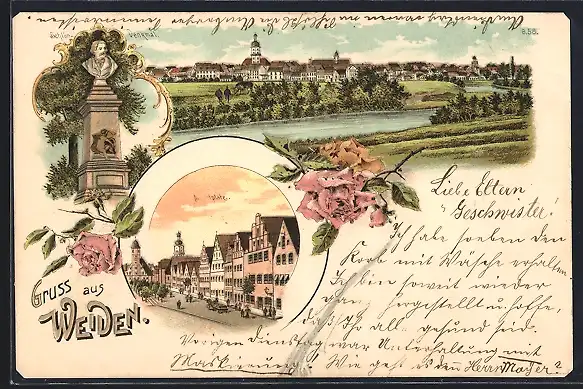 Schön- denkmal.
a.58.
platz.
Gruss aus
WEIDEN.
Liebe Eltern
Geschwister!
Ich habe soeben den
Korb mit Wäsche erhalten
Ich bin soweit wieder
hergestellt u. hoffe,
daß Ihr all gesund seid.
Vorigen Dienstag war Unterhaltung mit
Maskierung! Wie geht es den Herrn Master?